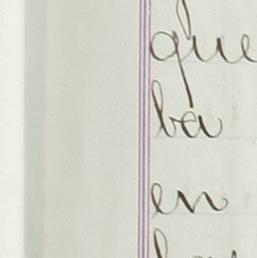 que
ba
en